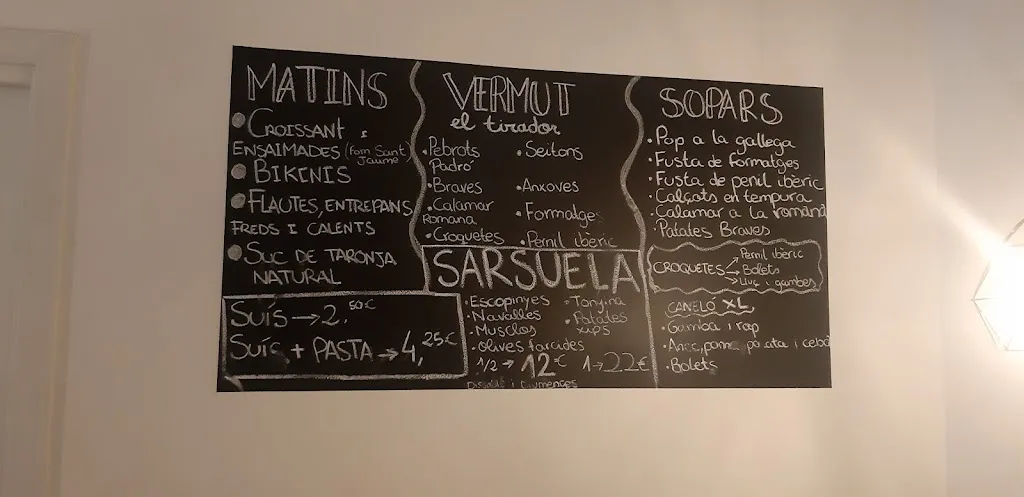 MATINS
• CROISSANT I
ENSAIMADES (Forn Sant
Jaume)
• BIKINIS
• FLAUTES, ENTREPANS
FREDS I CALENTS
• SUC DE TARONJA
NATURAL
SUÍS → 2,50€
SUÍS + PASTA → 4,25€
VERMUT
el tirador
• Pebrots
Padró
• Braves
• Calamar
Romana
• Croquetes
• Seitons
• Anxoves
• Formatges
• Pernil ibèric
SARSUELA
• Escopinyes
• Navalles
• Musclos
• Olives farcides
• Tonyina
• Patades
xips
1/2 → 12€ 1 → 22€
Dissabte i Diumenges
SOPARS
• Pop a la gallega
• Fusta de formatges
• Fusta de pernil ibèric
• Calçots en tempura
• Calamar a la romana
• Patates Braves
CROQUETES → Pernil ibèric
→ Bolets
→ Lluç i gambes
CANELÓ XL
• Gamba i rap
• Ànec, poma, i ceba
• Bolets